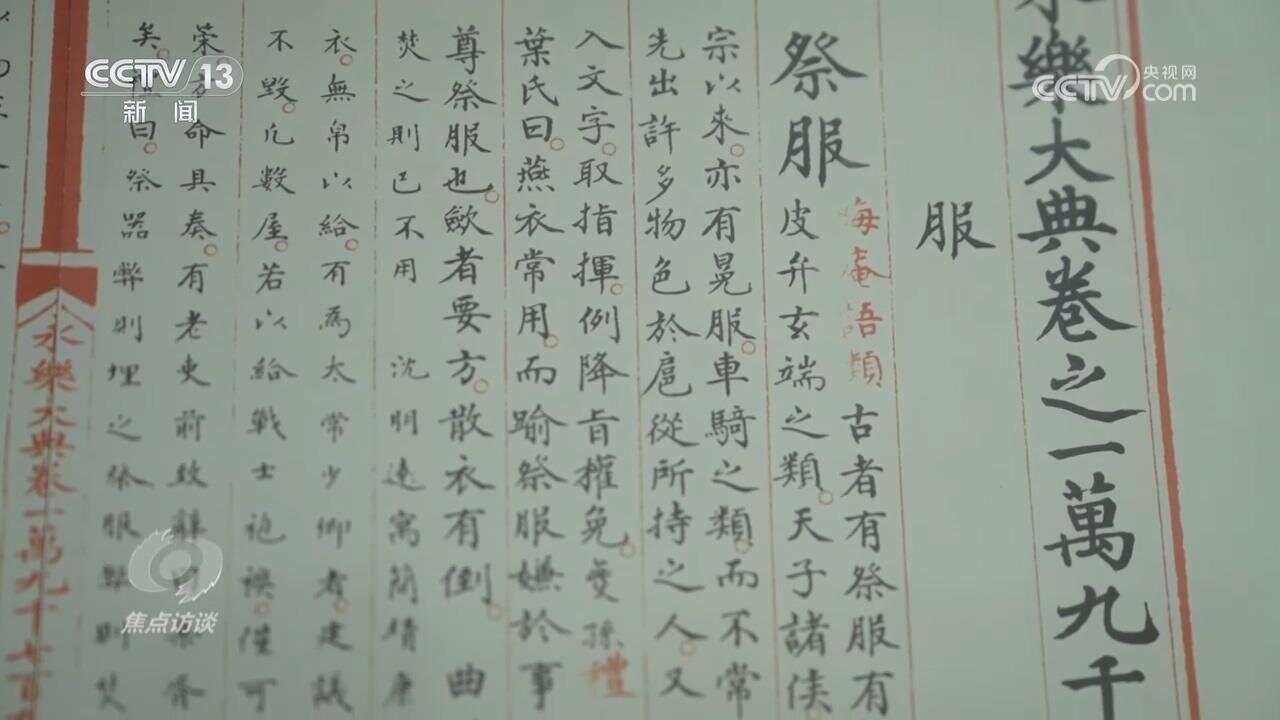 CCTV 13
新闻
央视网
CCTV.com
焦点访谈
永樂大典卷之一萬九千
服
祭服
晦菴語類古者有祭服有
皮弁玄端之類。天子諸侯
宗以來。亦有晃服。車騎之類。而不常
先出許多物色於扈從所持之人。又
入文字。取指揮。例降旨權免。夔孫禮
葉氏曰。燕衣常用。而踰祭服嫌於事
尊祭服也。歛者要方。散衣有倒。曲
焚之則已不用 沈明遠寓簡靖康
衣。無帛以給。有為太常少卿者。建議
不毀。凡數屋。若以給戰士袍襖。僅可
命具奏。有老吏前致辭曰
矣。禮曰。祭器弊則埋之祭服弊則焚
永樂大典卷一萬九千七百